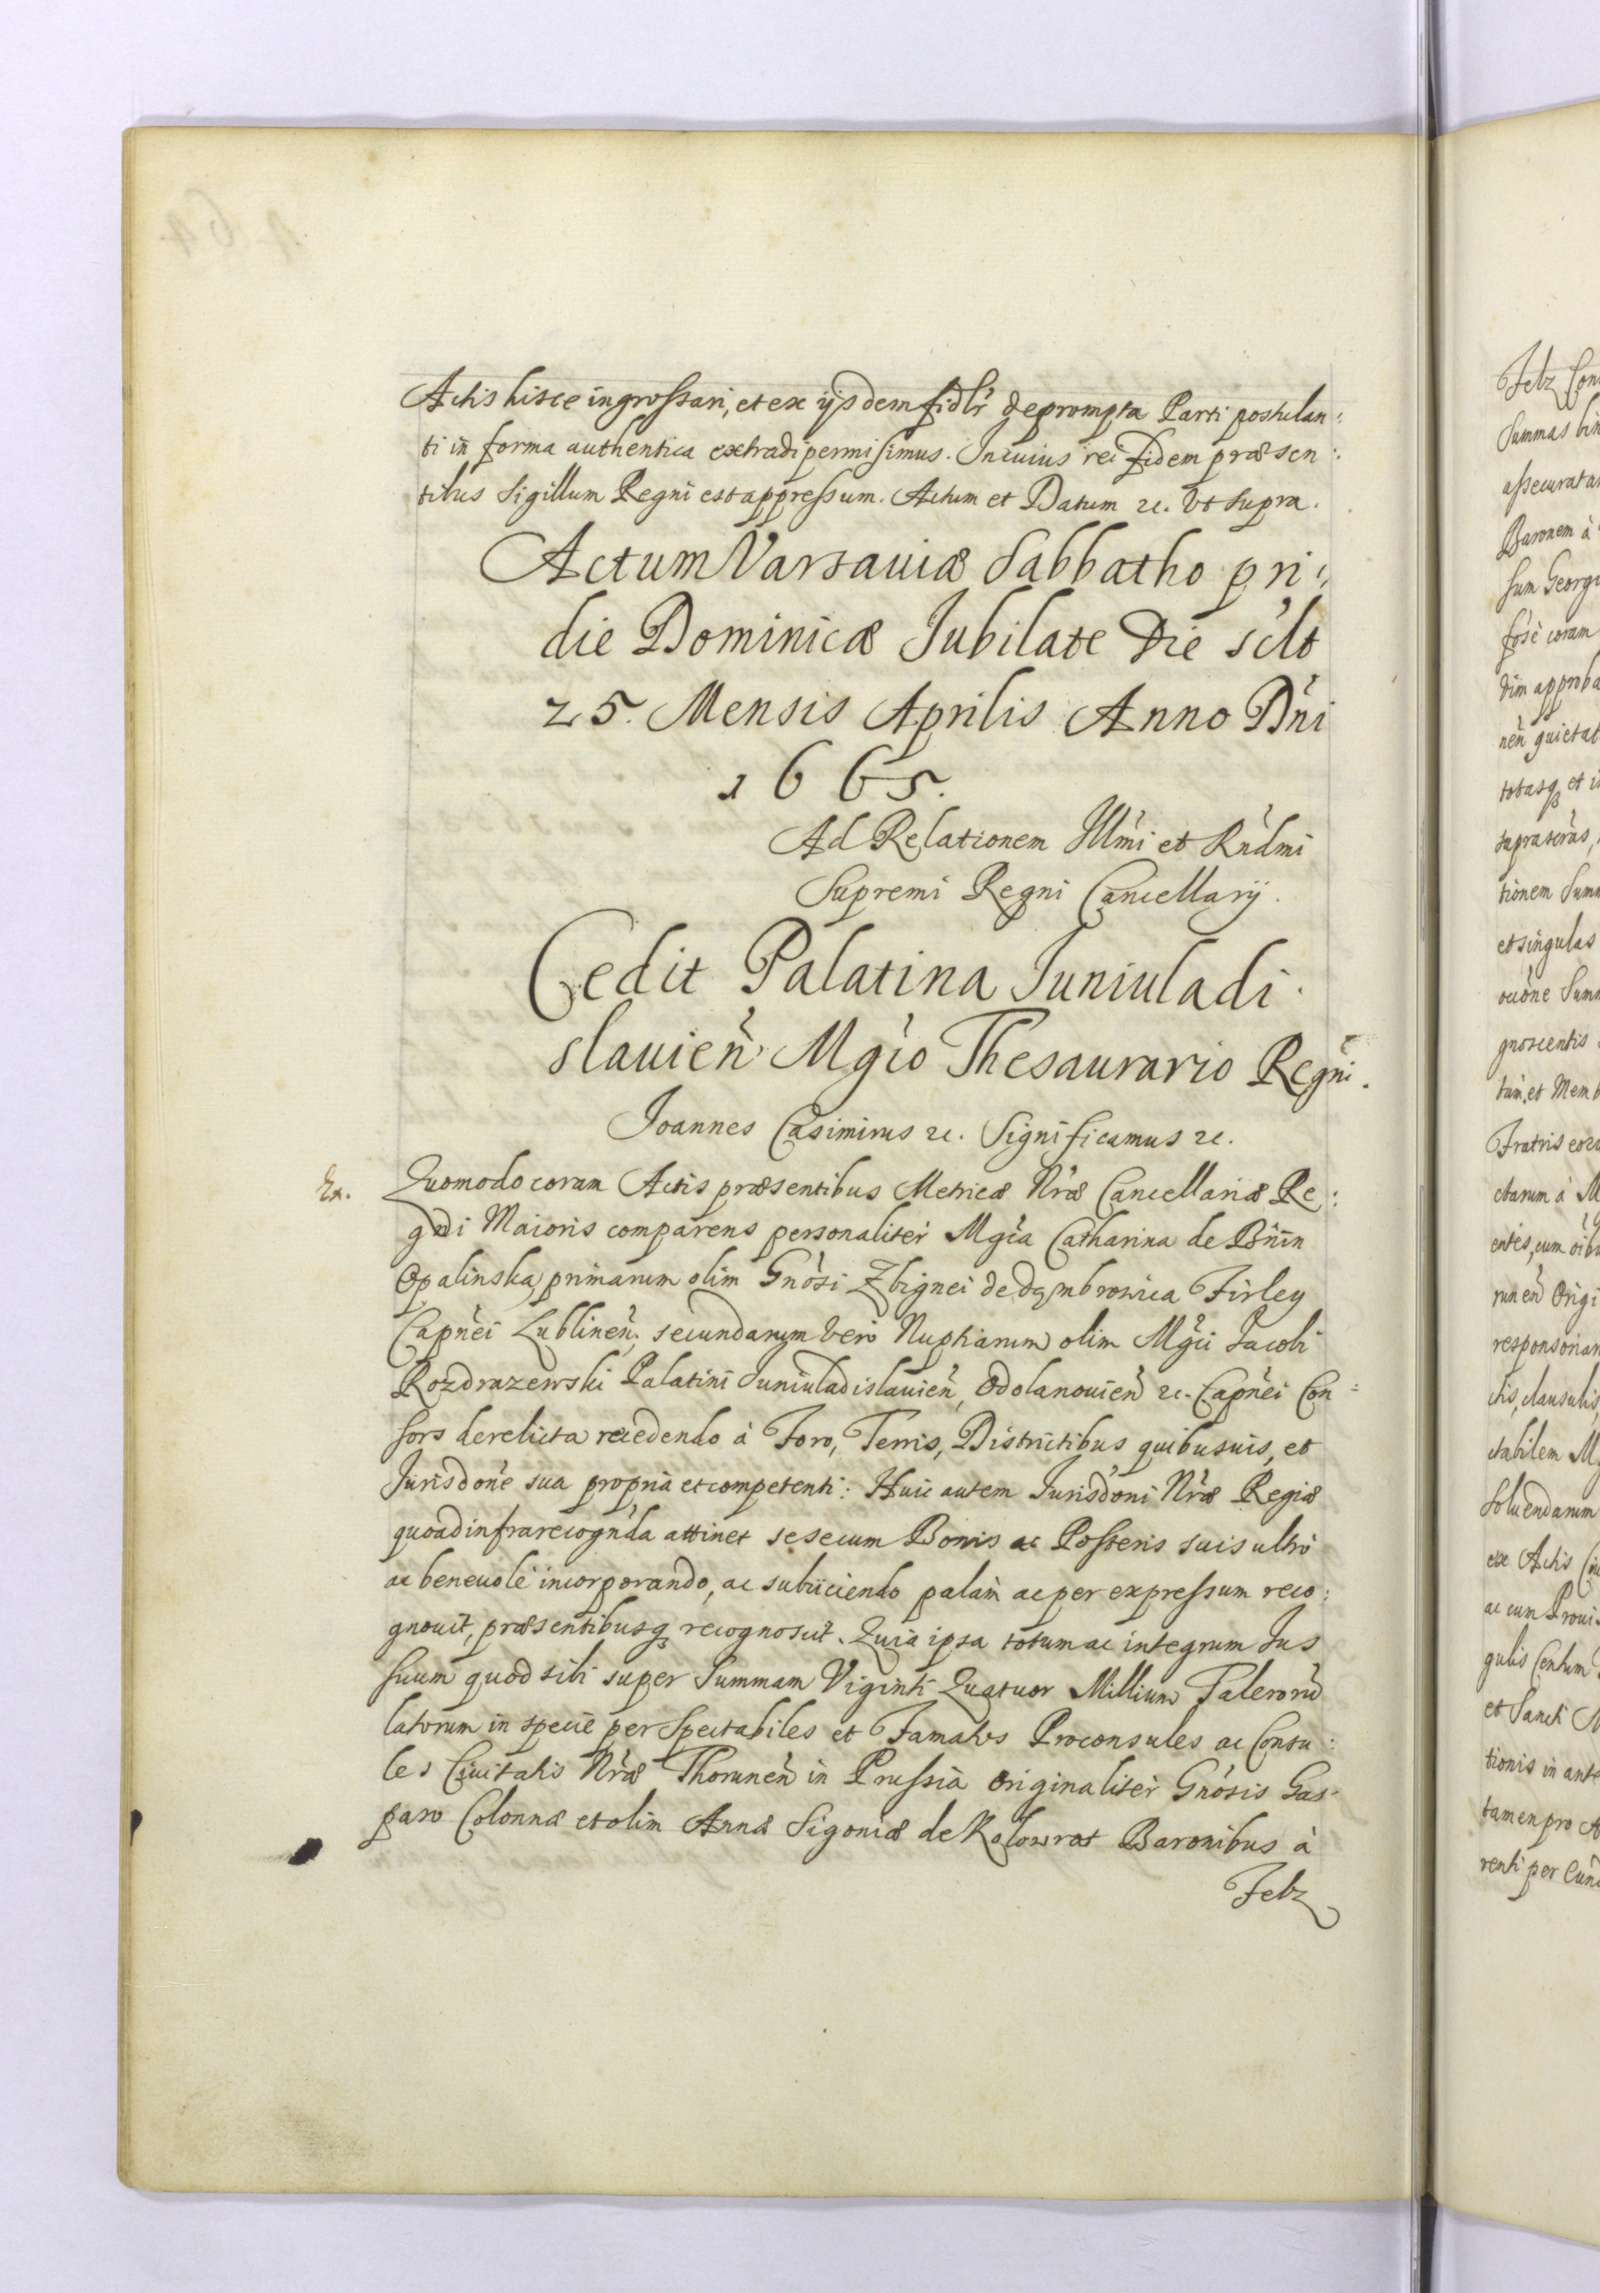 Actis hisce ingrossari, et ex ijsdem fidlr deprompta Parti postulan:
ti in forma authentica extradi permisimus. In cuius rei fidem præsen:
tibus Sigillum Regni est appressum. Actum et Datum &c. Vt supra.
Actum Varsauiæ Sabbatho pri:
die Dominicæ Jubilate Die scilt
25. Mensis Aprilis Anno Dni
1665.
Ad Relationem Illmi et Rndmi
Supremi Regni Cancellarij.
Cedit Palatina Juniuladi:
slauien Mgco Thesaurario Regni.
Joannes Casimirus &c. Significamus &c.
Ex.
Quomodo coram Actis præsentibus Metricæ Nræ Cancellariæ Re:
gni Maioris comparens personaliter Mgca Catharina de Bnin
Opalinska primarum olim Gnosi Zbignei de Dąmbrowica Firley
Capnei Lublinen, secundarum vero Nuptiarum olim Mgci Jacobi
Rozdrazewski Palatini Juniuladislauien, Odolanouien &c. Capnei Con=
sors derelicta recedendo à Foro, Terris, Districtibus quibusuis, et
Jurisdone sua propria et competenti: Huic autem Jurisdoni Nræ Regiæ
quoad infrarecognda attinet se secum Bonis ac Posteris suis ultro
ac beneuole incorporando, ac subiiciendo palam ac per expressum reco:
gnouit, præsentibusq recognoscit. Quia ipsa totum ac integrum Jus
suum quod sibi super Summam Viginti Quatuor Millium Taleroru
latorum in specie per Spectabiles et Famatos Proconsules ac Consu:
les Ciuitatis Nræ Thorunen in Prussia originaliter Gnosis Gas:
paro Colonnæ et olim Annæ Sigoniæ de Kolowrat Baronibus à
Felz
Felz Con
Summas bin
assecurata
Baronem à
sum Georgi
fose coram
dim approba
nen quietat
totasq et i
suprascras,
tionem Sum
et singulas
ocione Summ
gnoscentis
tum, et Memb
Fratris eoru
ctarum à M
entes, cum oibu
runen Origi
responsorian
ctis, clausulis,
ctabilem M
soluendarum
ex Actis Ciu
ac cum Proui
gulis Centum
et Sancti M
tionis in ante
tamen pro A
renti per Eund